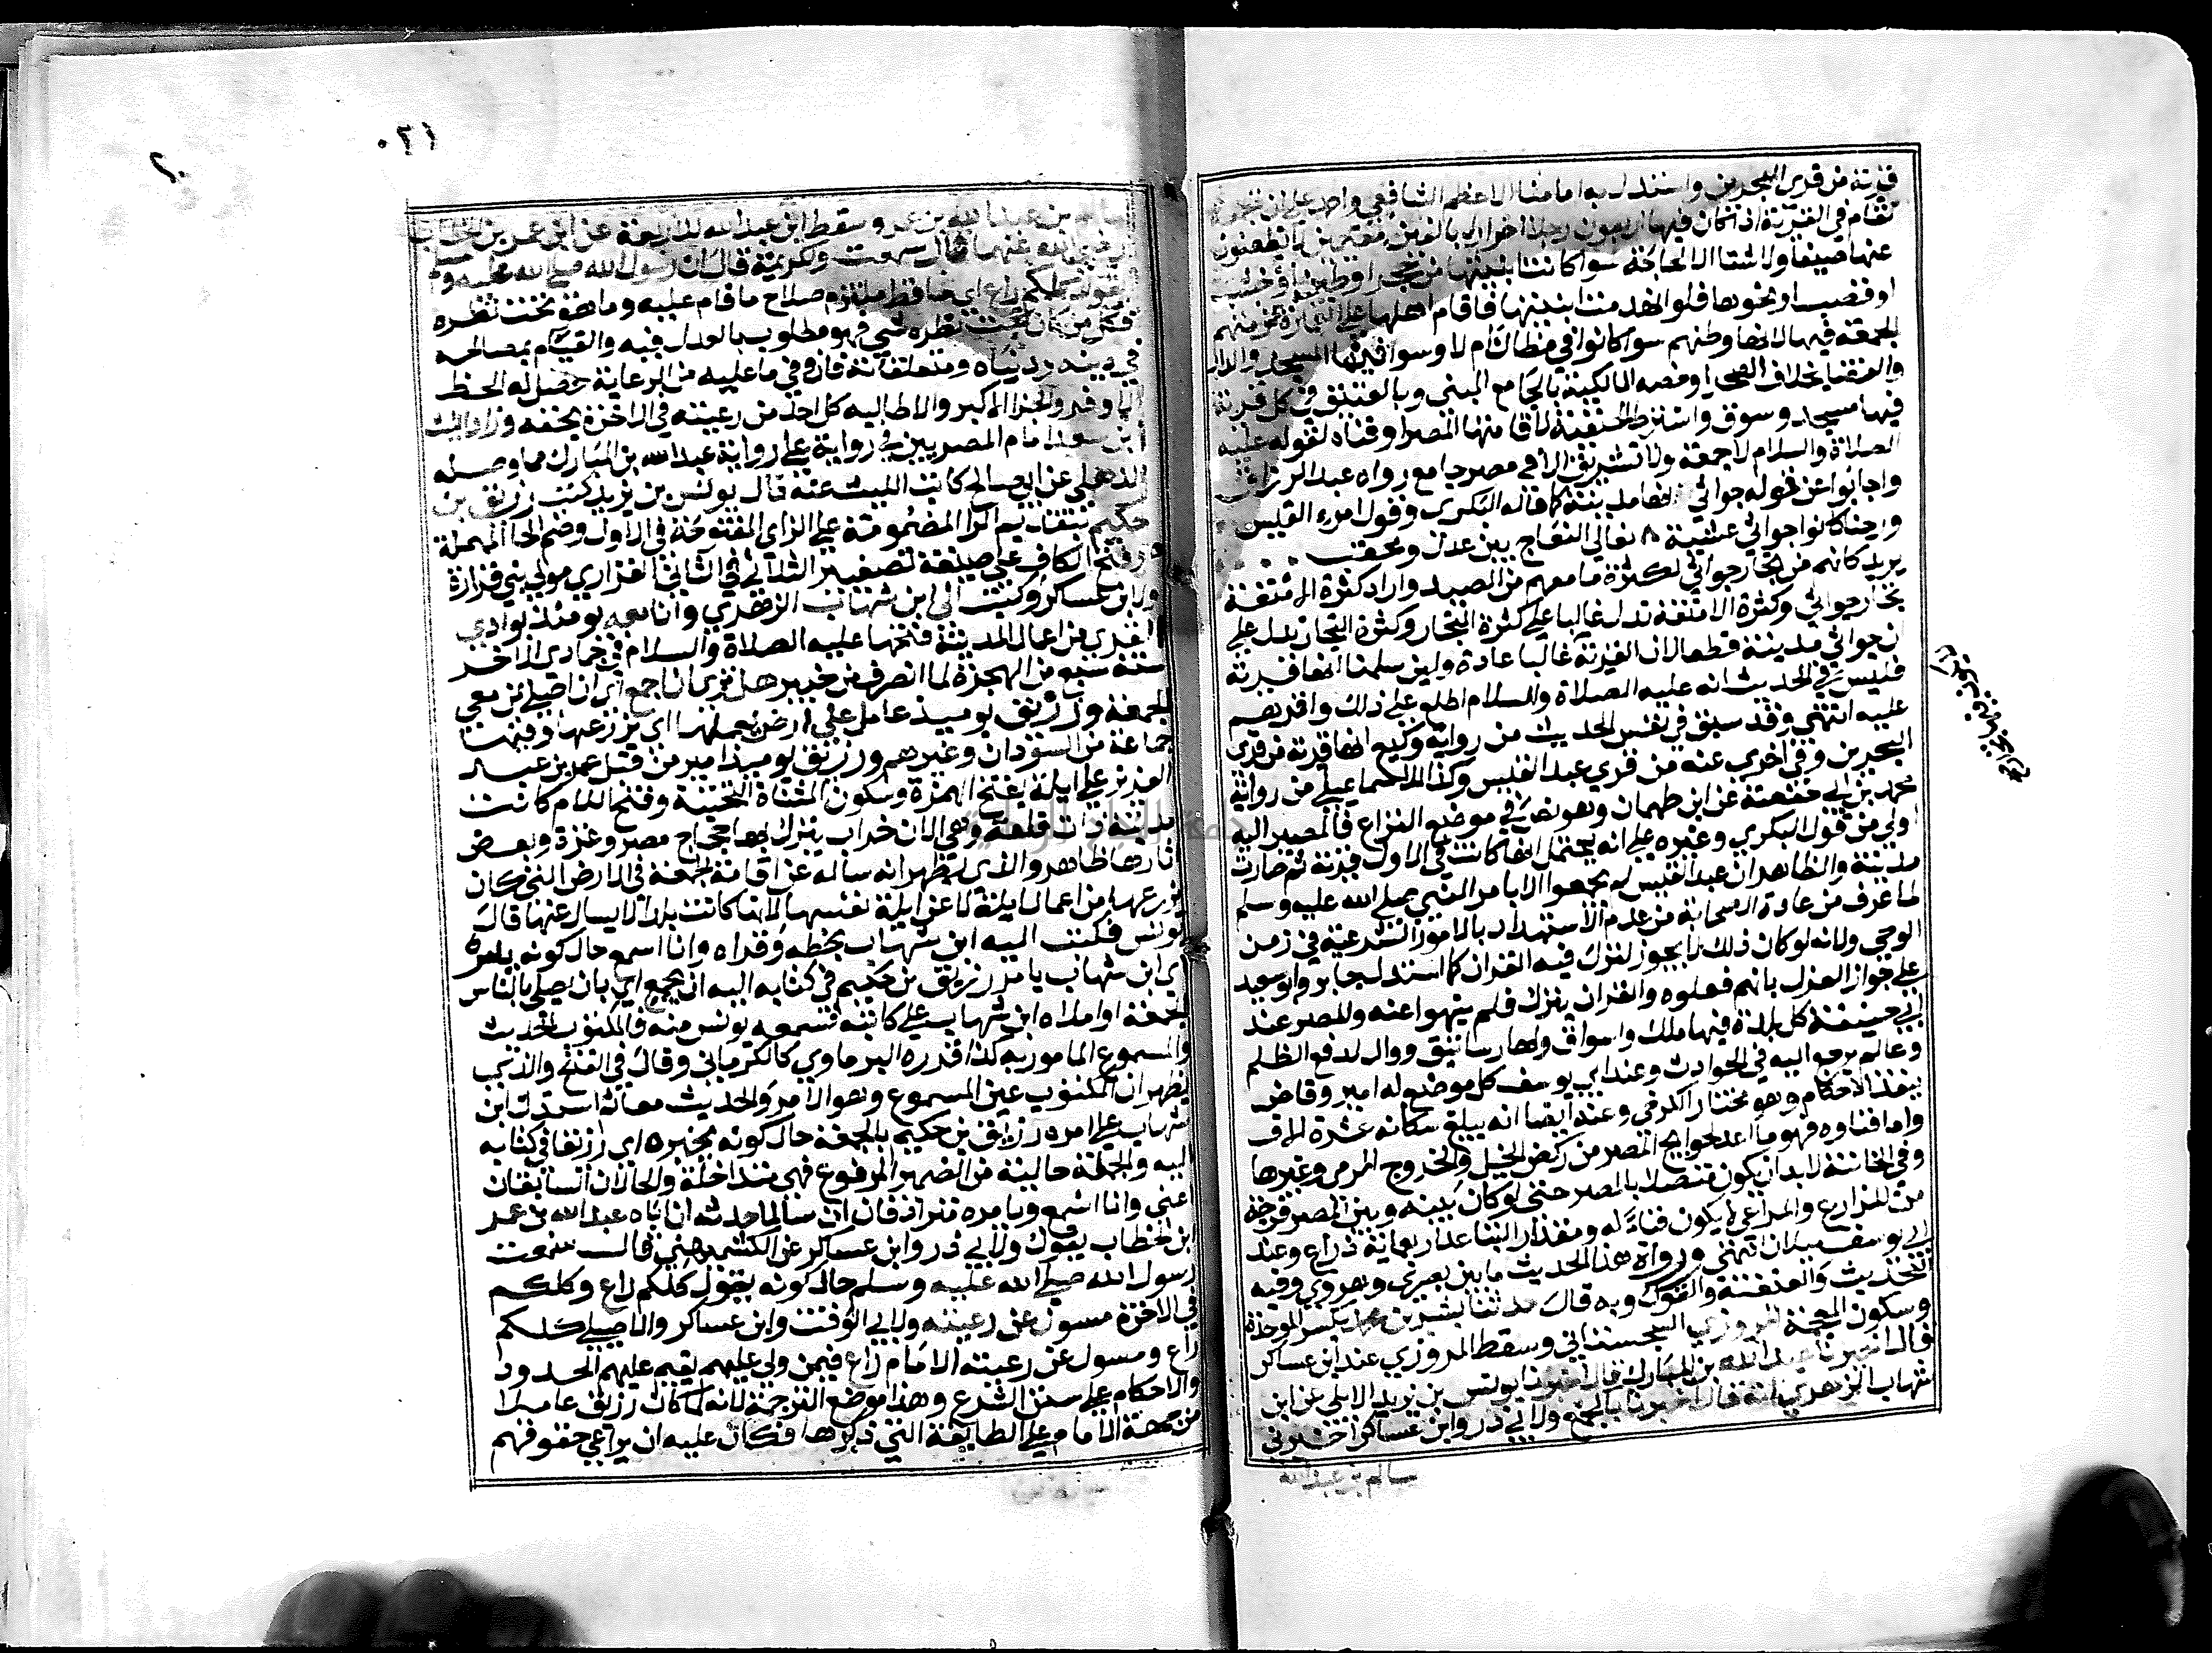 قرية من قري البحرين واستدل به امامنا الاعظم الشافعي واحمد علي ان الجمعة
تقام في القرية اذا كان فيها اربعون رجلا احرارا بالغين مقيمين لا يظعنون
عنها صيفا ولا شتا الا لحاجة سوا كانت ابنيتها من حجر او طين او خشب
او قصب او نحوها فلو انهدمت ابنيتها فاقام اهلها علي العمارة لزمتهم
الجمعة فيها لانها وطنهم سوا كانوا في مظال ام لا وسوا فيها المسجد والدار
والفضا بخلاف الصحرا وخصه المالكية بالجامع المبني وبالعتيق في كل قرية
فيها مسجد وسوق واشترط الحنفية لاقامتها المصر او فناه لقوله عليه
الصلاة والسلام لا جمعة ولا تشريق الا في مصر جامع رواه عبد الرزاق
واجابوا عن قوله جواثي انها مدينة كما قاله البكري وقول امرء القيس
ورحنا كانوا جواثي عشية نعالي النعاج بين عدل ومحقب
يريد كانهم من تجار جواثي لكثرة ما معهم من الصيد واراد كثرة امتعة
تجار جواثي وكثرة الامتعة تدل غالبا علي كثرة التجار وكثرة التجار تدل علي
ان جواثي مدينة قطعا لان القرية غالبا عادة ولين سلمنا انها قرية
فليس في الحديث انه عليه الصلاة والسلام اطلع علي ذلك واقرهم
عليه انتهي وقد سبق في نفس الحديث من رواية وكيع انها قرية من قري
البحرين وفي اخري عنه من قري عبد القيس وكذا للاسماعيلي من رواية
محمد بن ابي حفصة عن ابن طهمان وهو نص في موضع النزاع فالمصير اليه
اولي من قول البكري وغيره علي انه يحتمل انها كانت في الاول قرية ثم صارت
مدينة والظاهر ان عبد القيس لم يجمعوا الا بامر النبي صلي الله عليه وسلم
لما عرف من عادة الصحابة من عدم الاستبداد بالامور الشرعية في زمن
الوحي ولانه لو كان ذلك لا يجوز لنزل فيه القران كما استدل جابر وابو سعيد
علي جواز العزل بانهم فعلوه والقران ينزل فلم ينهوا عنه والمصر عند
ابي حنيفة كل بلدة فيها ملك واسواق ولها رساتيق ووال لدفع الظلم
وعالم يرجع اليه في الحوادث وعند ابي يوسف كل موضع له امير وقاض
ينفذ الاحكام وهو مختار الكرخي وعنه ايضا انه يبلغ سكانه عشرة الاف
واما فناوه فهو ما اعد لحوايج المصر من ركض الخيل والخروج للرمي وغيرها
وفي الخانية لابد ان يكون متصلا بالمصر حتي لو كان بينه وبين المصر فرجة
من المزارع والمراعي لا يكون فناء له ومقدار التباعد اربعماية ذراع وعند
ابي يوسف ميلان انتهي ورواة هذا الحديث ما بين بصري وهروي وفيه
التحديث والعنعنة والقول وبه قال حدثنا بشر بن محمد بكسر الموحدة
وسكون المعجمة المروزي السجستاني وسقط المروزي عند ابن عساكر
قال اخبرنا عبد الله بن المبارك قال اخبرنا يونس بن يزيد الايلي عن ابن
شهاب الزهري انه قال اخبرنا بالجمع ولابي ذر وابن عساكر اخبرني
سالم بن عبد الله
٠٢١
سالم بن عبد الله بن عمر وسقط ابن عبد الله للاربعة عن ابن عمر بن الخطاب
رضي الله عنهما قال سمعت ولكريمة قال ان رسول الله صلي الله عليه وسلم
يقول كلكم راع اي حافظ ملتزم صلاح ما قام عليه وما هو تحت نظره
فكل من كان تحت نظره شي فهو مطلوب بالعدل فيه والقيام بمصالحه
في دينه ودنياه ومتعلقاته فان وفي ما عليه من الرعاية حصل له الحظ
الاوفر والجزا الاكبر والا طالبه كل احد من رعيته في الاخرة بحقه وزاد الليث
ابن سعد امام المصريين في رواية علي رواية عبد الله بن المبارك مما وصله
الذهلي عن ابي صالح كاتب الليث عنه قال يونس بن يزيد كتب رزيق بن
حكيم بتقديم الرا المضمومة علي الزاي المفتوحة في الاول وضم الحا المهملة
وفتح الكاف علي صيغة تصغير الثلاثي في الثاني الفزاري مولي بني فزارة
ولابن عساكر وكتب الي ابن شهاب الزهري وانا معه يومئذ بوادي
القري من اعمال المدينة فتحها عليه الصلاة والسلام في جمادي الاخر
سنة سبع من الهجرة لما انصرف من خيبر هل تري ان اجمع اي ان اصلي بمن معي
الجمعة ورزيق يوميذ عامل علي ارض يعملها اي يزرعها وفيها
جماعة من السودان وغيرهم ورزيق يوميذ امير من قبل عمر بن عبد
العزيز علي ايلة بفتح الهمزة وسكون المثناة التحتية وفتح اللام كانت
مدينة ذات قلعة وهي الان خراب ينزل بها حجاج مصر وغزة وبعض
اثارها ظاهر والذي يظهر انه ساله عن اقامة الجمعة في الارض التي كان
يزرعها من اعمال ايلة لا عن ايلة نفسها لانها كانت بلدا لا يسال عنها قال
يونس فكتب اليه ابن شهاب بخطه وقراه وانا اسمع حال كونه يامره
اي ابن شهاب يامر رزيق بن حكيم في كتابه اليه ان يجمع اي بان يصلي بالناس
الجمعة او املاه ابن شهاب علي كاتبه فسمعه يونس منه فالمكتوب الحديث
والمسموع المامور به كذا قدره البرماوي كالكرماني وقال في الفتح والذي
يظهر ان المكتوب عين المسموع وهو الامر والحديث معا ثم استدل ابن
شهاب علي امره رزيق بن حكيم بالجمعة حال كونه يخبره اي رزيقا في كتابه
اليه والجملة حالية من الضمير المرفوع فهي متداخلة والحالان السابقان
اعني وانا اسمع ويامره مترادفان ان سالما حدثه ان اباه عبد الله بن عمر
ابن الخطاب يقول ولابي ذر وابن عساكر عن الكشميهني قال سمعت
رسول الله صلي الله عليه وسلم حال كونه يقول كلكم راع وكلكم
في الاخرة مسول عن رعيته ولابي الوقت وابن عساكر والاصيلي كلكم
راع ومسول عن رعيته الامام راع فيمن ولي عليهم يقيم عليهم الحدود
والاحكام علي سنن الشرع وهذا موضع الترجمة لانه لما كان رزيق عاملا
من جهة الامام علي الطايفة التي ذكرها فكان عليه ان يراعي حقوقهم